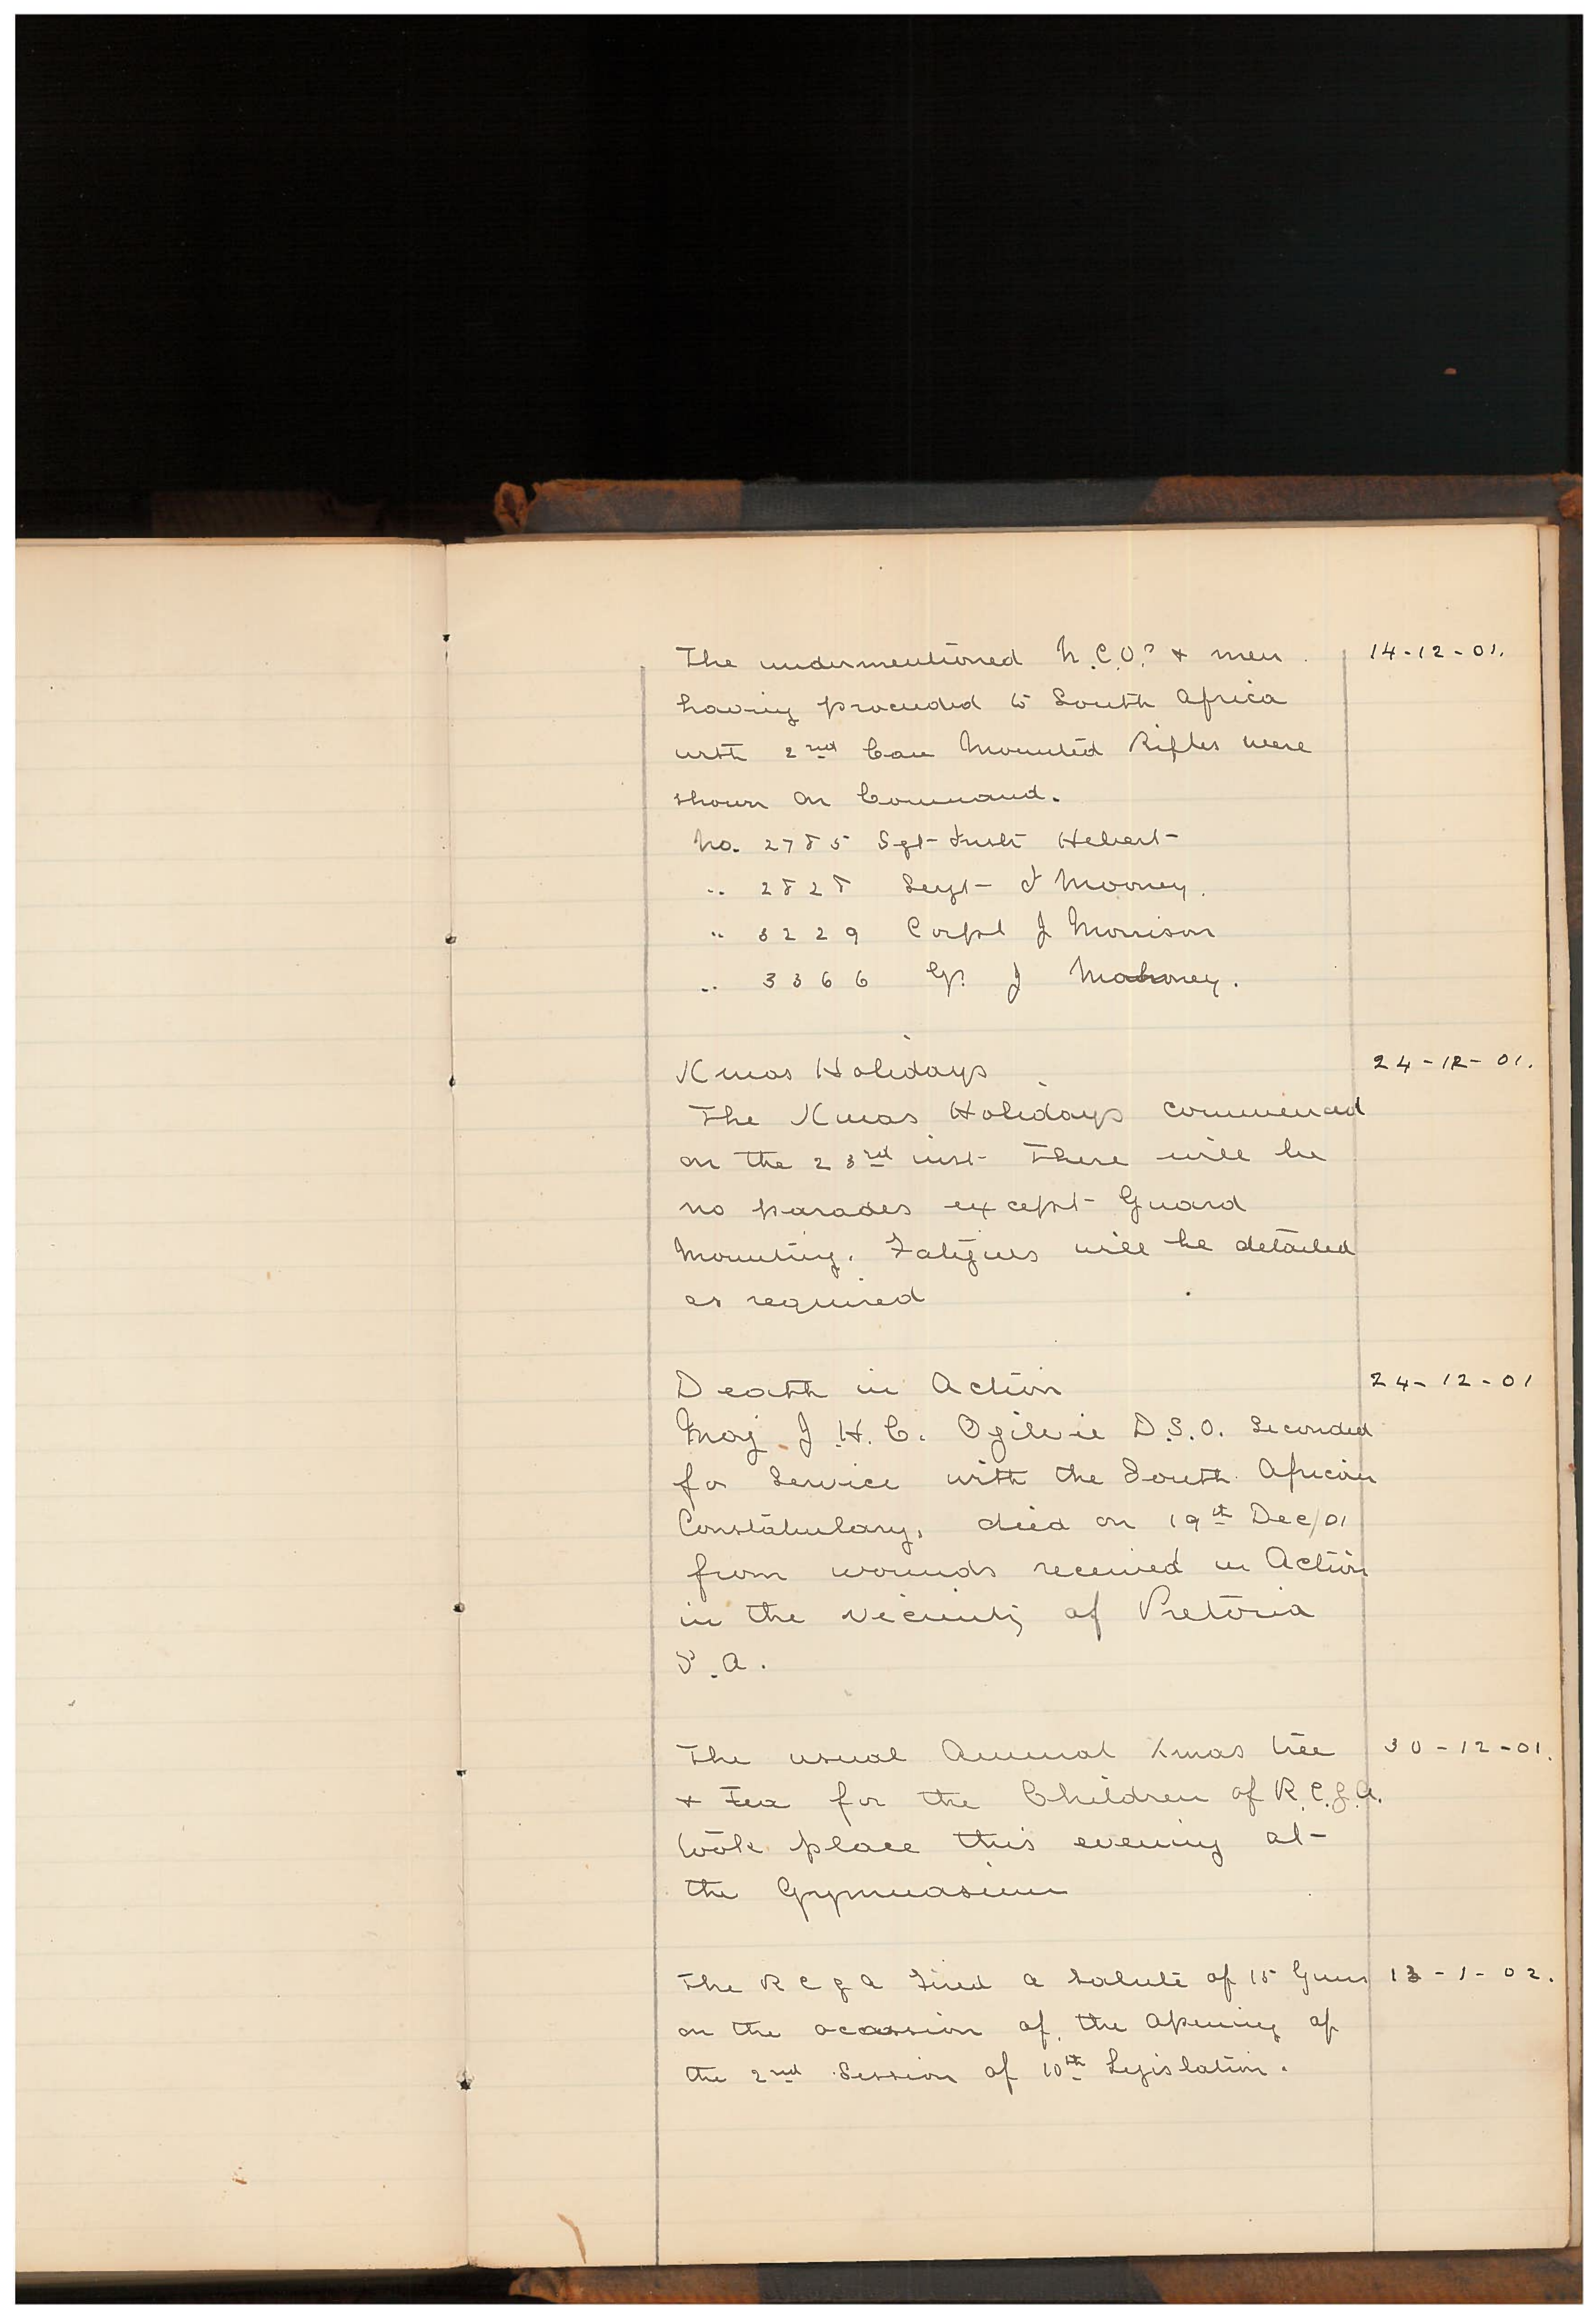 The undermentioned N.C.O.s & men 14-12-01.
having proceeded to South Africa
with 2nd Can Mounted Rifles were
shown on Command.
No. 2785 Sgt-Instr Hebert
" 2828 Sergt J Mooney.
" 3229 Corpl J Morrison
" 3366 Gr. J Mahoney.
Xmas Holidays 24-12-01.
The Xmas Holidays commenced
on the 23rd inst There will be
no parades except Guard
Mounting. Fatigues will be detailed
as required
Death in Action 24-12-01
Maj J.H.C. Ogilvie D.S.O. Seconded
for Service with the South African
Constabulary, died on 19th Dec/01
from wounds received in Action
in the vicinity of Pretoria
S.A.
The usual Annual Xmas tree 30-12-01.
& Tea for the Children of R.C.G.A.
took place this evening at
the Gymnasium
The R C G A Fired a Salute of 15 Guns 13-1-02.
on the ocassion of the Opening of
the 2nd Session of 10th Legislation.